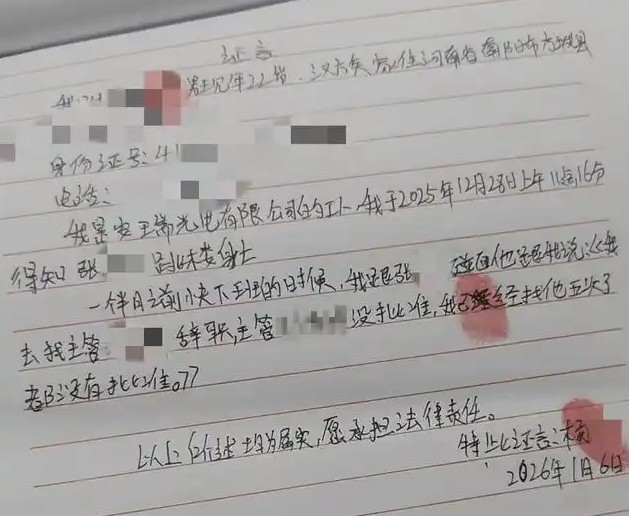 证言
男,现年22岁,汉族,家住河南省南阳市方城县
身份证号:41
电话:
我是 光电有限公司的工人,我于2025年12月28日上午11点16分
得知张 跳楼身亡
一件月之前 快下班的时候,我跟张 碰面他还跟我说:《我
去找主管 辞职,主管 没批准,我已经找他五次了
都没有批准。》
以上所述均为属实,愿承担法律责任。
特此证言:杨
2026年1月6日